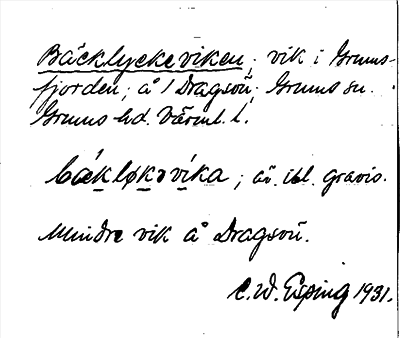 Bäcklyckeviken; vik i Grums-
fjorden; å / Dragsön; Grums sn.
Grums hd. Värml. l.
bækløkəvika; äv. gravis.
Mindre vik å Dragsön.
C.W. Esping 1931.